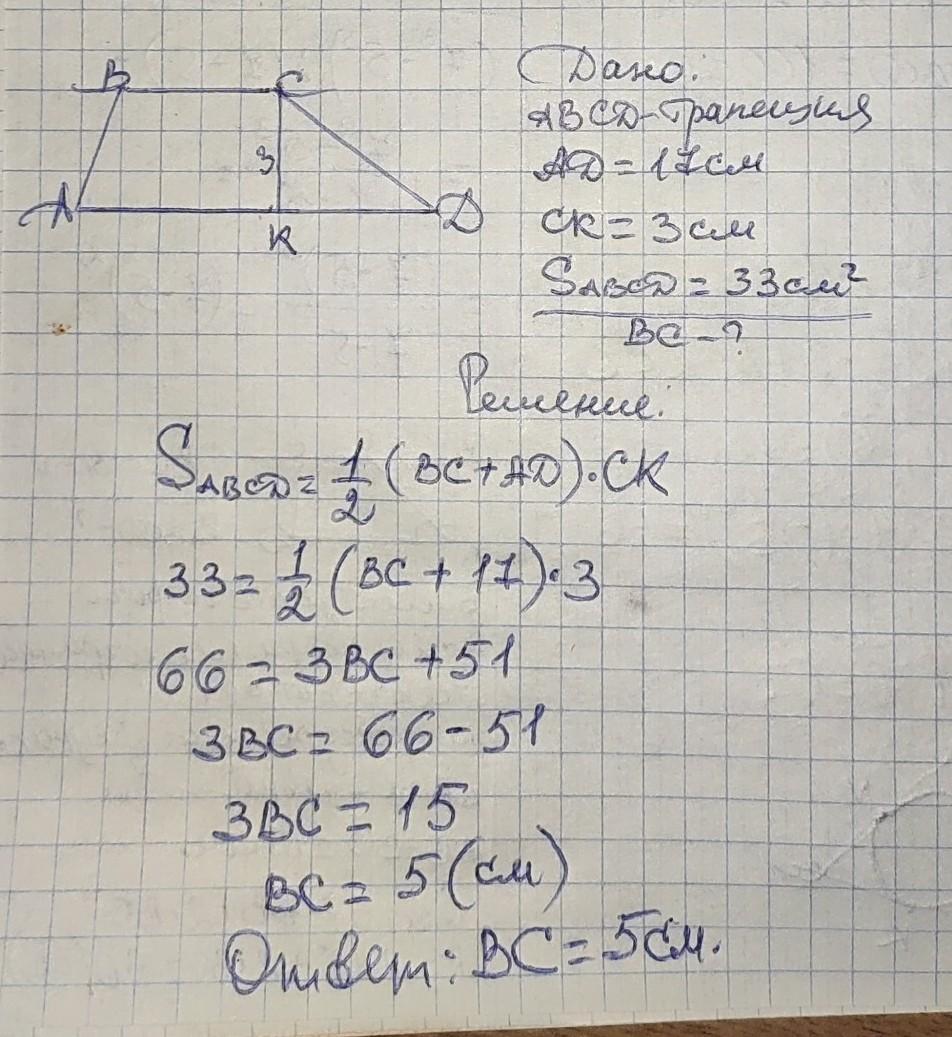 B C
3
A K D
Дано:
ABCD-трапеция
AD = 17см
CK = 3см
SABCD = 33см²
BC - ?
Решение:
SABCD = 1/2 (BC + AD) · CK
33 = 1/2 (BC + 17) · 3
66 = 3BC + 51
3BC = 66 - 51
3BC = 15
BC = 5 (см)
Ответ: BC = 5см.